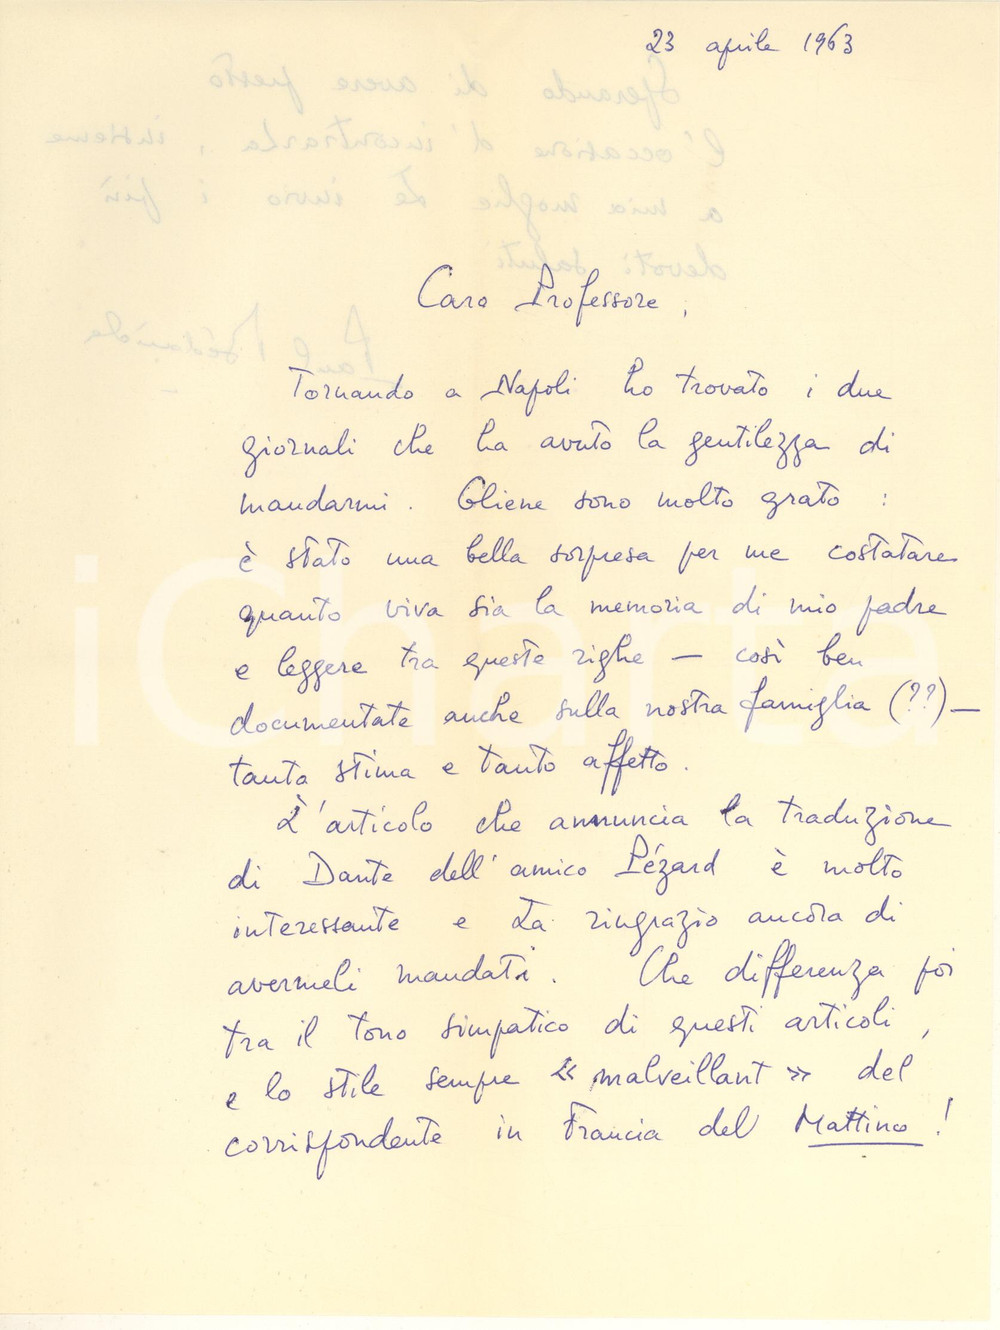 23 aprile 1963
Caro Professore,
Tornando a Napoli ho trovato i due
giornali che ha avuto la gentilezza di
mandarmi. Gliene sono molto grato :
è stato una bella sorpresa per me costatare
quanto viva sia la memoria di mio padre
e leggere tra queste righe — così ben
documentate anche sulla nostra famiglia (??) —
tanta stima e tanto affetto.
L'articolo che annuncia la traduzione
di Dante dell'amico Pézard è molto
interessante e La ringrazio ancora di
avermeli mandati. Che differenza poi
tra il tono simpatico di questi articoli,
e lo stile sempre « malveillant » del
corrispondente in Francia del Mattino !
Sperando di avere presto
l'occasione d'incontrarLa, insieme
a mia moglie Le invio i più
devoti saluti
Paul
iCharta